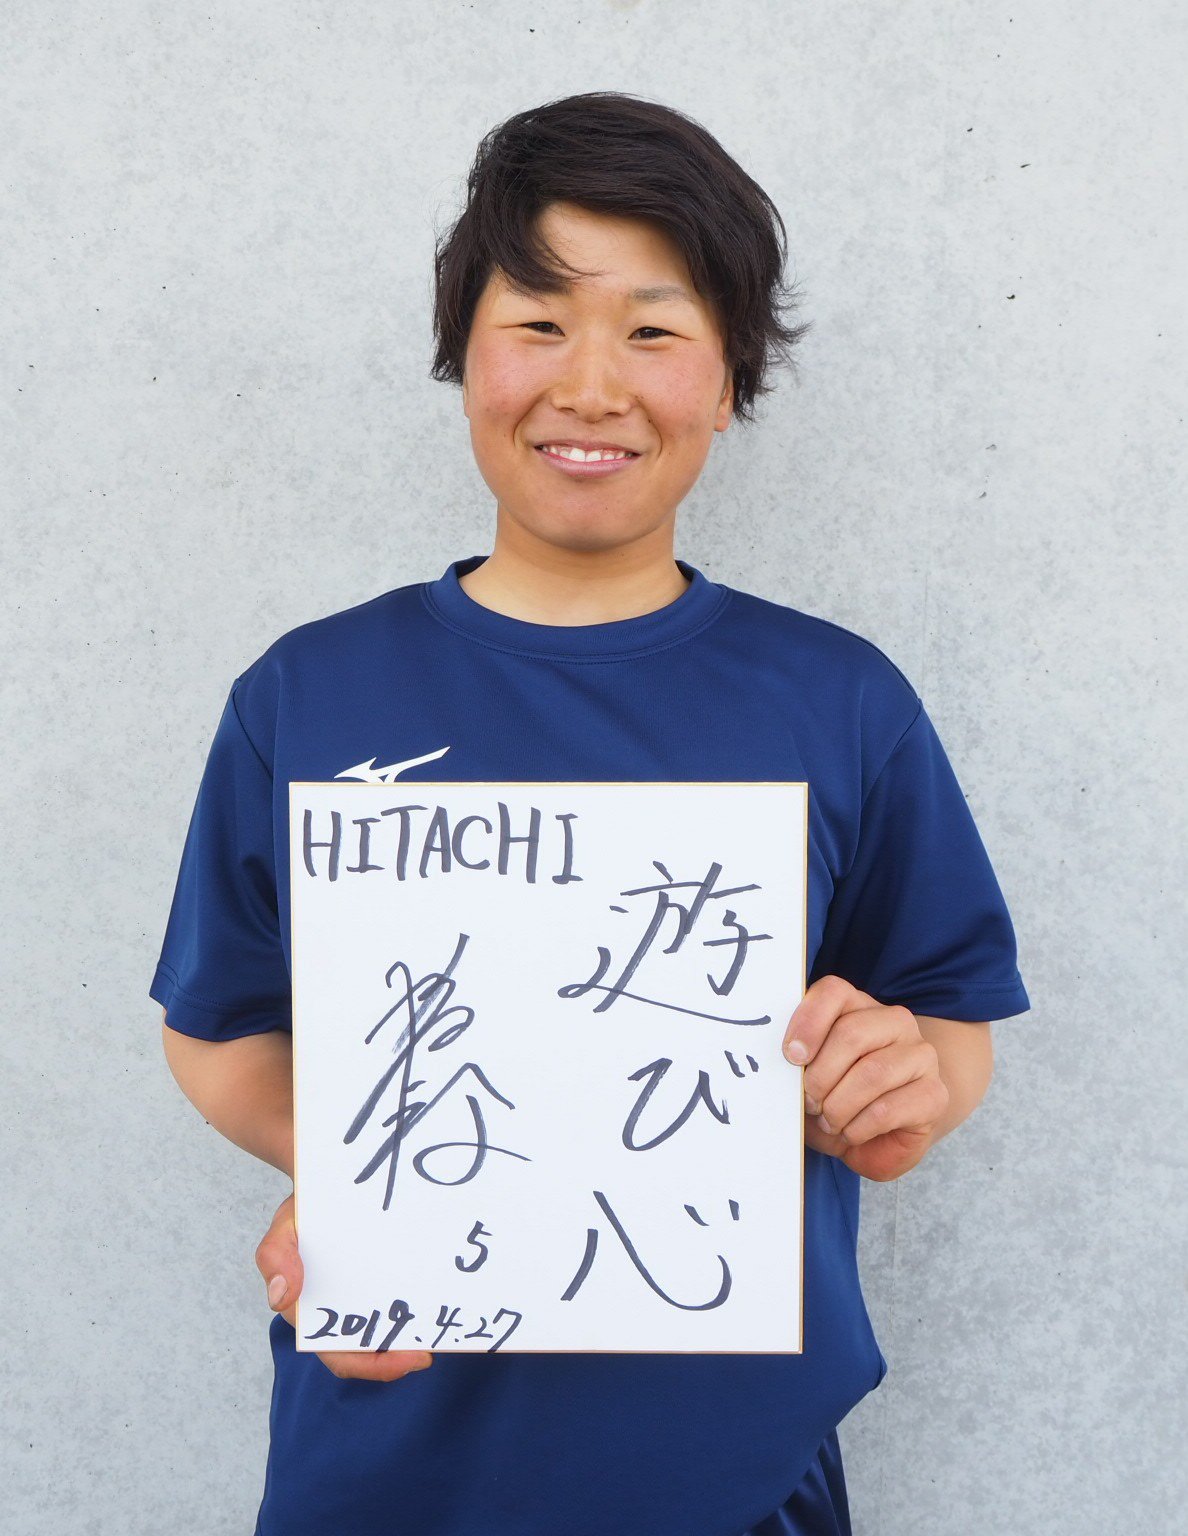 HITACHI
遊び心
5
2019.4.27